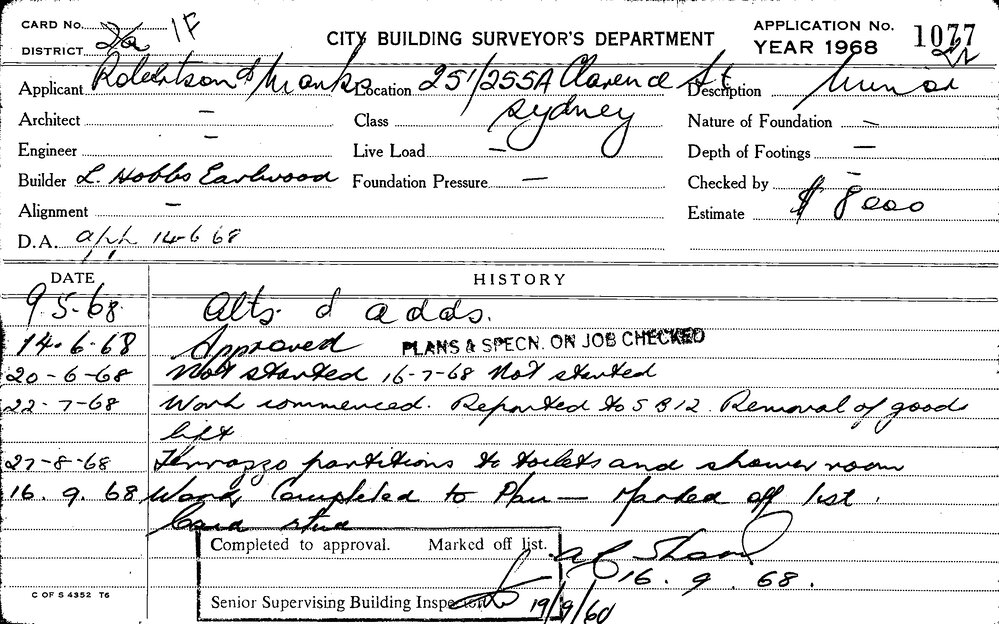 CARD No. 2a 1F
DISTRICT
CITY BUILDING SURVEYOR'S DEPARTMENT
APPLICATION No. 1077
YEAR 1968
Applicant Robertson & Marks Location 251/255A Clarence St Description Minor
Architect – Class Sydney Nature of Foundation –
Engineer – Live Load – Depth of Footings –
Builder L. Hobbs Earlwood Foundation Pressure – Checked by –
Alignment – Estimate $ 8000
D.A. app 14-6 68
DATE HISTORY
9.5.68. Alts. & adds.
14.6.68 Approved PLANS & SPECN. ON JOB CHECKED
20-6-68 Not started 16-7-68 Not started
22-7-68 Work commenced. Reported to S B 12. Removal of goods
lift
27-8-68 Terrazzo partitions to toilets and shower room
16.9.68 Work Completed to Plan — Marked off list.
Card
Completed to approval. Marked off list.
16.9.68.
Senior Supervising Building Inspector 19/9/60
C OF S 4352 T6